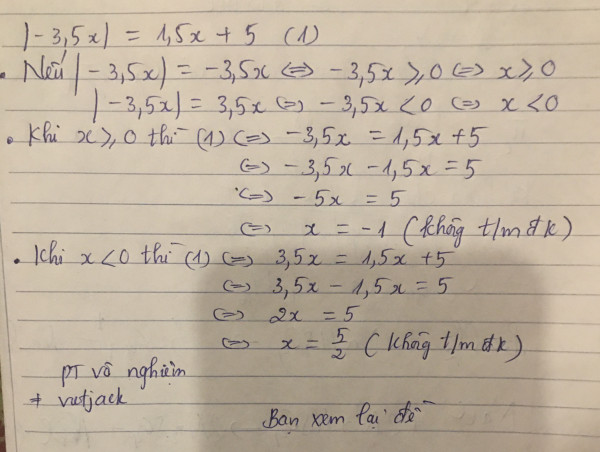 |-3,5x| = 1,5x + 5 (1)
• Nếu |-3,5x| = -3,5x ⇔ -3,5x ⩾ 0 ⇔ x ⩾ 0
|-3,5x| = 3,5x ⇔ -3,5x < 0 ⇔ x < 0
• Khi x ⩾ 0 thì (1) ⇔ -3,5x = 1,5x + 5
⇔ -3,5x - 1,5x = 5
⇔ -5x = 5
⇔ x = -1 (không t/m đk)
• Khi x < 0 thì (1) ⇔ 3,5x = 1,5x + 5
⇔ 3,5x - 1,5x = 5
⇔ 2x = 5
⇔ x = 5/2 (không t/m đk)
PT vô nghiệm
+ vietjack
Bạn xem lại đề